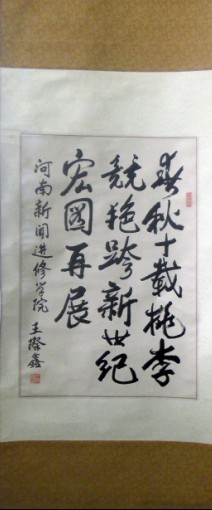 春秋十载桃李
竞艳跨新世纪
宏图再展
河南新闻进修学院 王隆鑫